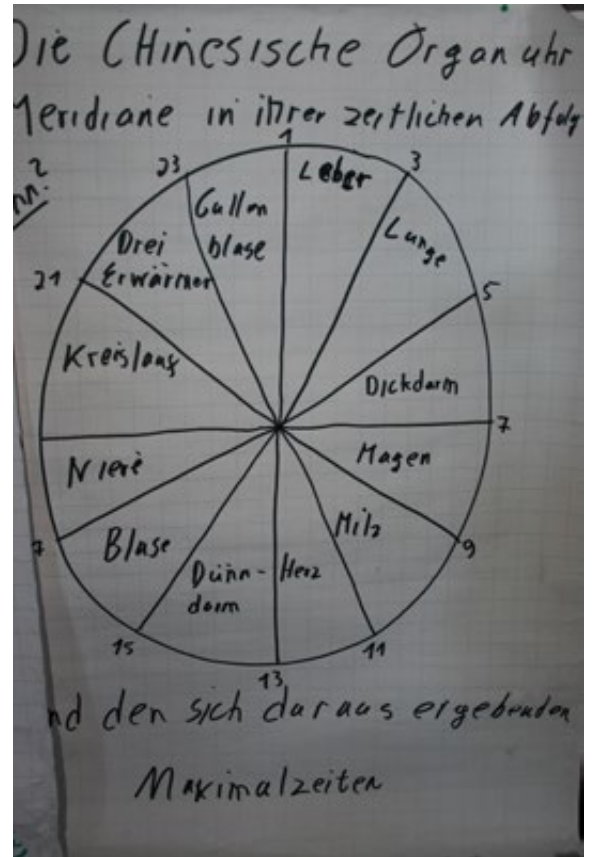 Die Chinesische Organuhr
Meridiane in ihrer zeitlichen Abfolg
1
Leber
3
Lunge
5
Dickdarm
7
Magen
9
Milz
11
Herz
13
Dünn-
darm
15
Blase
7
Niere
Kreislauf
21
Drei
Erwärmer
23
Gallen
blase
nd den sich daraus ergebenden
Maximalzeiten